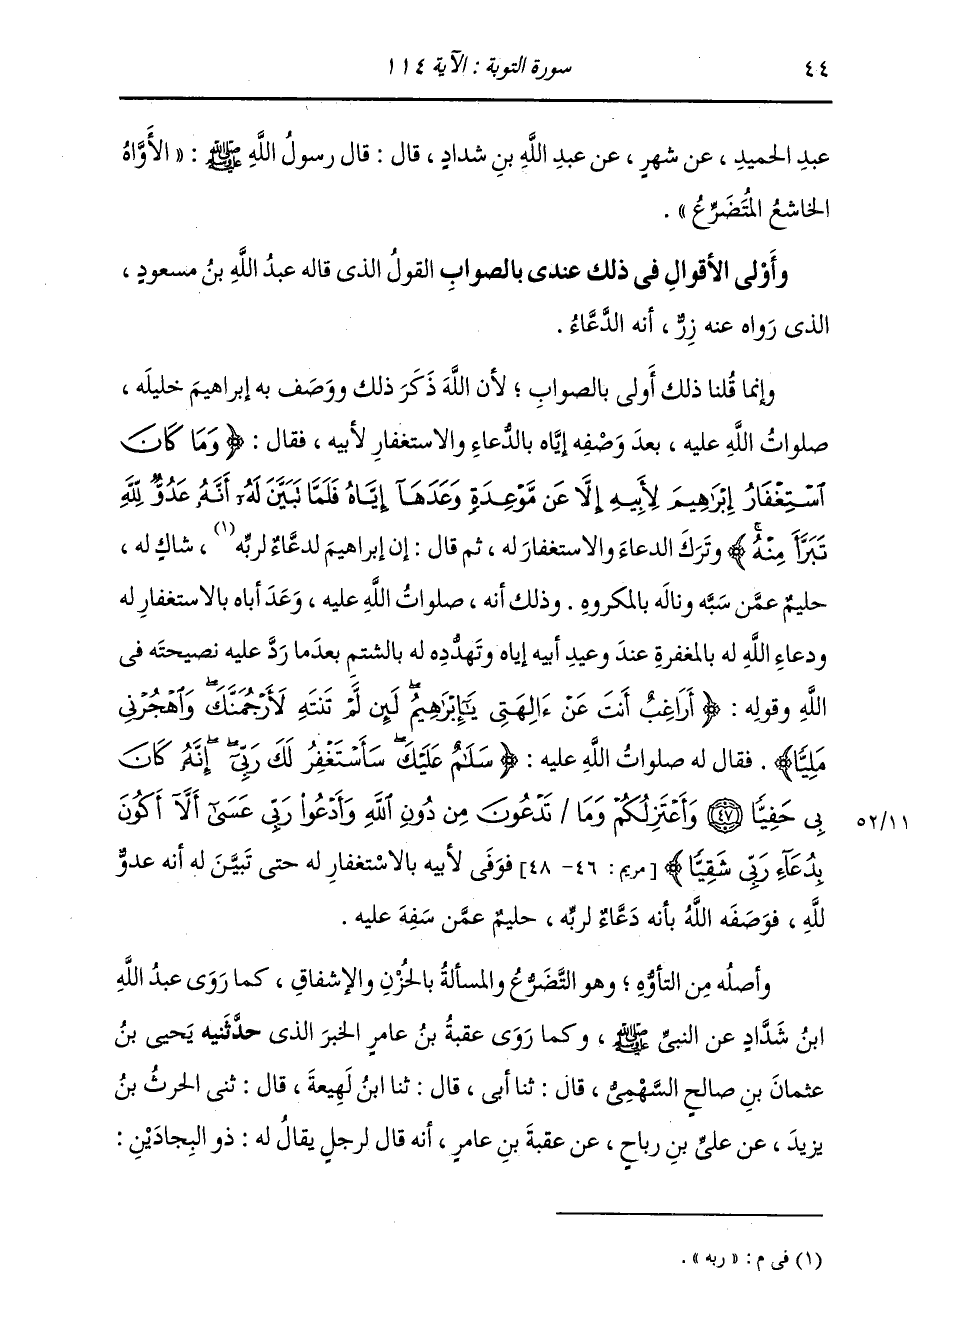 ٤٤ سورة التوبة : الآية ١١٤
عبدِ الحميدِ ، عن شهرٍ ، عن عبدِ اللَّهِ بنِ شدادٍ ، قال : قال رسولُ اللَّهِ ﷺ : « الأَوَّاهُ
الخاشعُ المُتَضَرِّعُ » .
وأَوْلى الأقوالِ فى ذلك عندى بالصوابِ القولُ الذى قاله عبدُ اللَّهِ بنُ مسعودٍ ،
الذى رَواه عنه زِرٌّ ، أنه الدَّعَّاءُ .
وإنما قُلنا ذلك أَولى بالصوابِ ؛ لأن اللَّهَ ذَكَرَ ذلك ووَصَف به إبراهيمَ خليلَه ،
صلواتُ اللَّهِ عليه ، بعدَ وَصْفِه إيَّاه بالدُّعاءِ والاستغفارِ لأبيه ، فقال : ﴿ وَمَا كَانَ
ٱسْتِغْفَارُ إِبْرَٰهِيمَ لِأَبِيهِ إِلَّا عَن مَّوْعِدَةٍ وَعَدَهَآ إِيَّاهُ فَلَمَّا تَبَيَّنَ لَهُۥٓ أَنَّهُۥ عَدُوٌّ لِّلَّهِ
تَبَرَّأَ مِنْهُۚ ﴾ وتَرَكَ الدعاءَ والاستغفارَ له ، ثم قال : إن إبراهيمَ لدعَّاءٌ لربِّه(١) ، شاكٍ له ،
حليمٌ عمَّن سَبَّه ونالَه بالمكروهِ . وذلك أنه ، صلواتُ اللَّهِ عليه ، وَعَدَ أباه بالاستغفارِ له
ودعاءِ اللَّهِ له بالمغفرةِ عندَ وعيدِ أبيه إياه وتَهدُّدِه له بالشتمِ بعدَما رَدَّ عليه نصيحتَه فى
اللَّهِ وقولِه : ﴿ أَرَاغِبٌ أَنتَ عَنْ ءَالِهَتِى يَٰٓإِبْرَٰهِيمُۖ لَئِن لَّمْ تَنتَهِ لَأَرْجُمَنَّكَۖ وَٱهْجُرْنِى
مَلِيًّا﴾ . فقال له صلواتُ اللَّهِ عليه : ﴿ سَلَٰمٌ عَلَيْكَۖ سَأَسْتَغْفِرُ لَكَ رَبِّىٓۖ إِنَّهُۥ كَانَ
بِى حَفِيًّا ٤٧ وَأَعْتَزِلُكُمْ وَمَا / تَدْعُونَ مِن دُونِ ٱللَّهِ وَأَدْعُوا۟ رَبِّى عَسَىٰٓ أَلَّآ أَكُونَ ٥٢/١١
بِدُعَآءِ رَبِّى شَقِيًّا ﴾ [مريم : ٤٦- ٤٨] فوَفَى لأبيه بالاسْتغفارِ له حتى تَبيَّنَ له أنه عدوٌّ
للَّهِ ، فوَصَفَه اللَّهُ بأنه دَعَّاءٌ لربِّه ، حليمٌ عمَّن سَفِهَ عليه .
وأصلُه مِن التأوُّهِ ؛ وهو التَّضَرُّعُ والمسألةُ بالحُزْنِ والإشفاقِ ، كما رَوَى عبدُ اللَّهِ
ابنُ شَدَّادٍ عن النبىِّ ﷺ ، وكما رَوَى عقبةُ بنُ عامرٍ الخبرَ الذى حدَّثَنيه يَحيى بنُ
عثمانَ بنِ صالحٍ السَّهْمِىُّ ، قال : ثنا أبى ، قال : ثنا ابنُ لَهِيعةَ ، قال : ثنى الحرثُ بنُ
يزيدَ ، عن علىِّ بنِ رباحٍ ، عن عقبةَ بنِ عامرٍ ، أنه قال لرجلٍ يقالُ له : ذو البِجادَيْنِ :
(١) فى م : « ربه » .